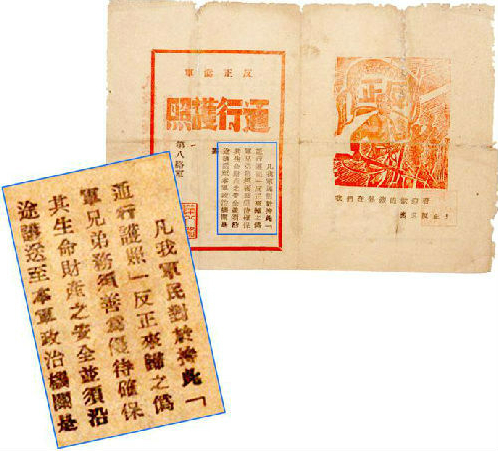 反正偽軍
通行護照
凡我軍民對於持此「
通行護照」反正來歸之偽
軍兄弟務須善為優待確保
其生命財產之安全並須沿
途護送至本軍政治機關是
第八路軍
凡我軍民對於持此「
通行護照」反正來歸之偽
軍兄弟務須善為優待確保
其生命財產之安全並須沿
途護送至本軍政治機關是